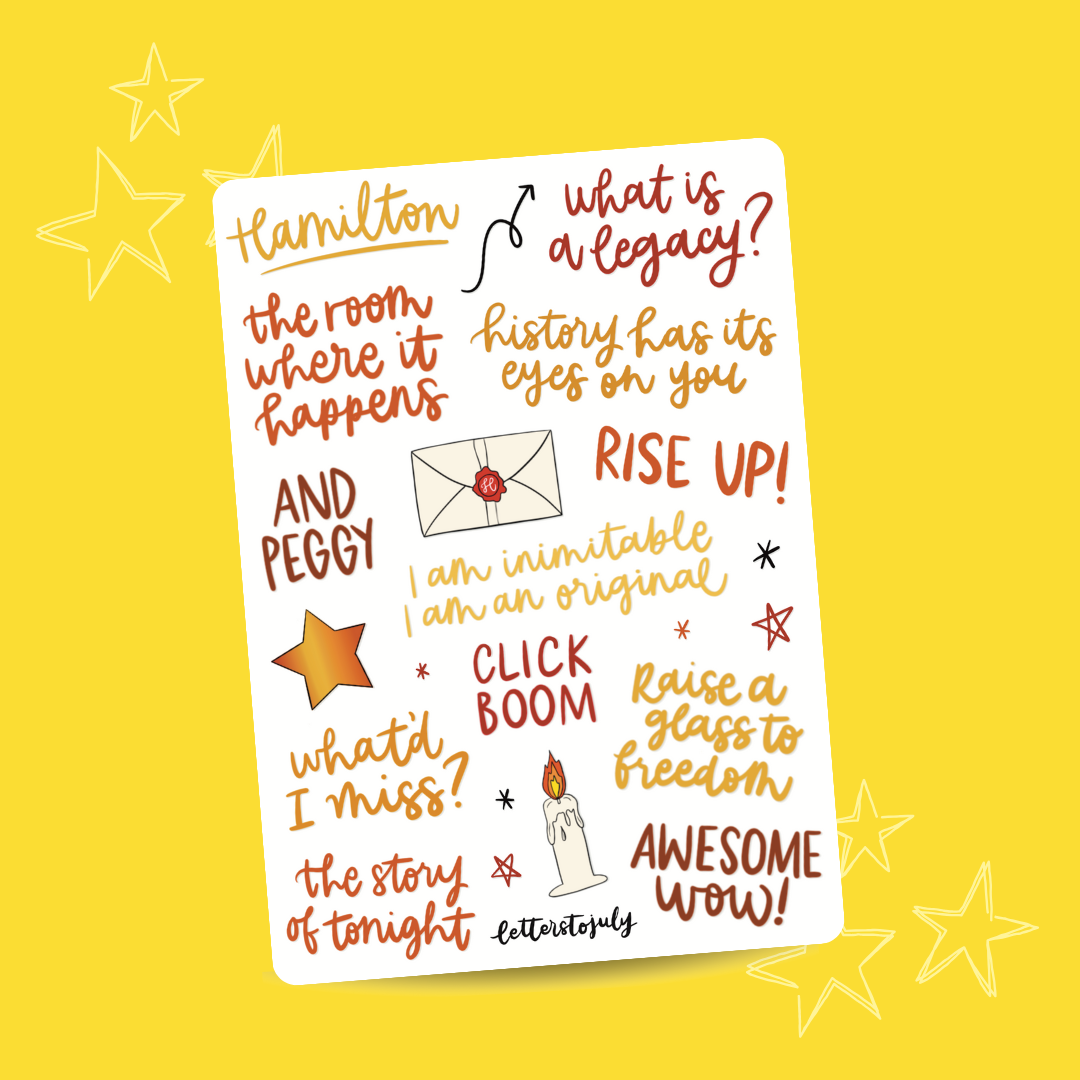 Hamilton
what is
a legacy?
the room
where it
happens
history has its
eyes on you
RISE UP!
AND
PEGGY
H
I am inimitable
I am an original
CLICK
BOOM
Raise a
glass to
freedom
what'd
I miss?
AWESOME
wow!
the story
of tonight
letterstojuly